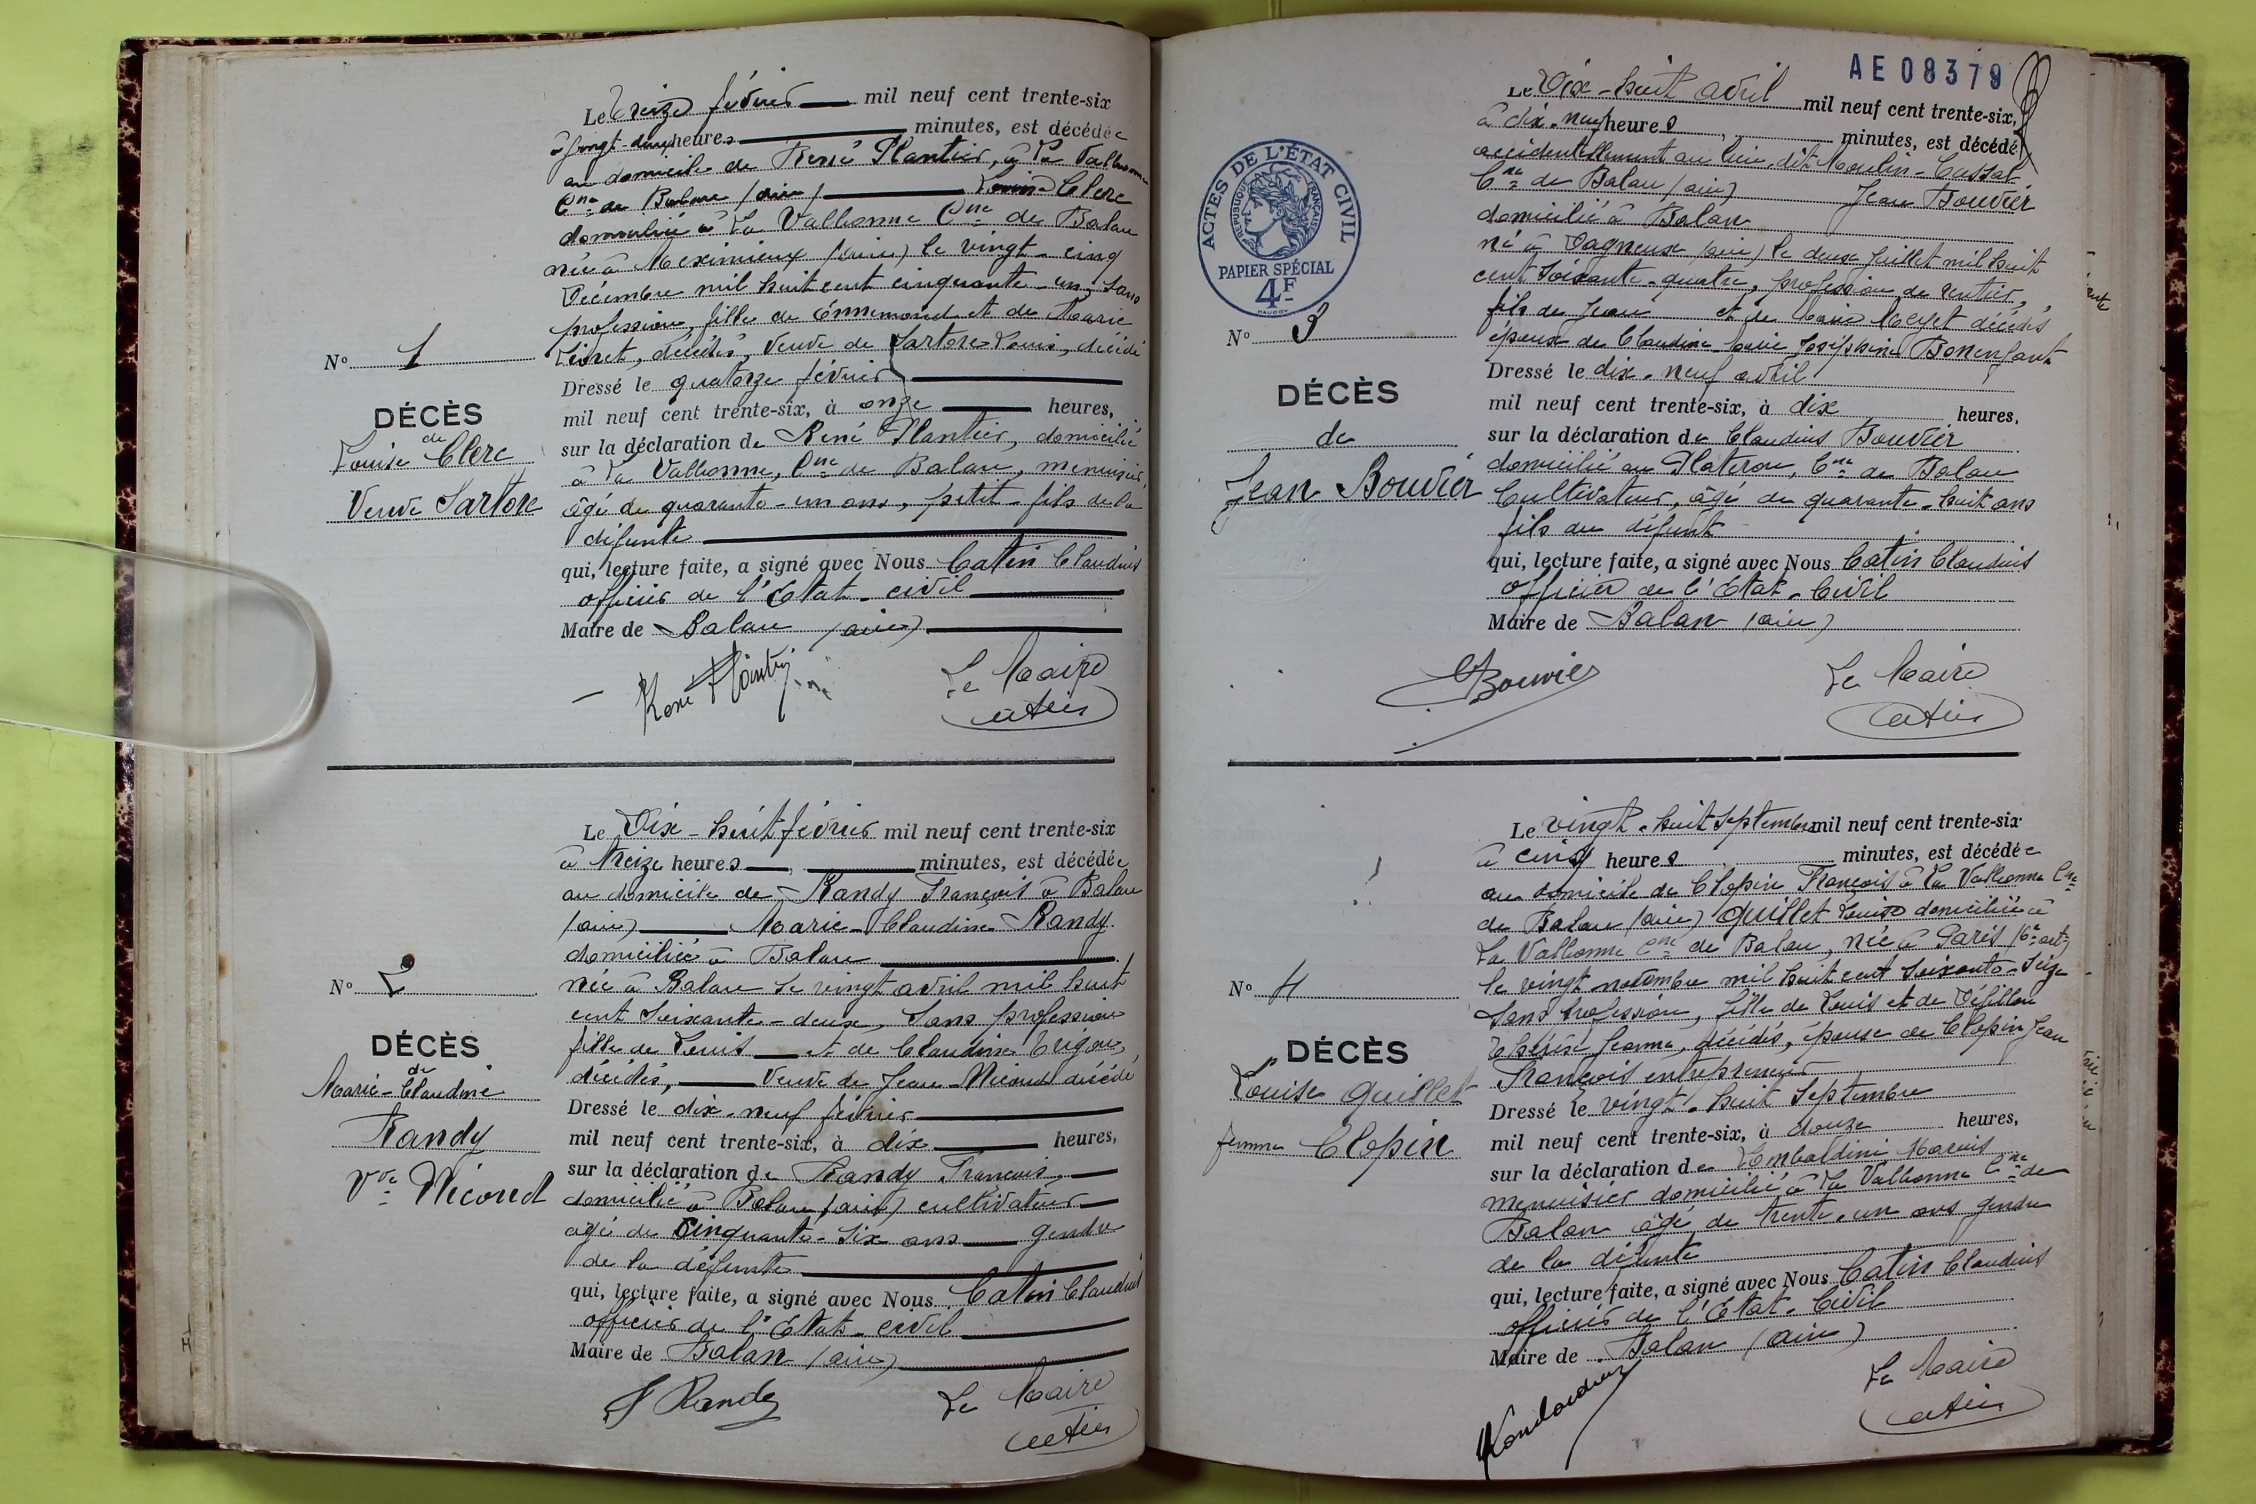 Le Treize février mil neuf cent trente-six
à vingt-deux heures minutes, est décédée
au domicile de René Plantier, à La Valbonne
Cne de Balan (ain) Louise Clerc
domiciliée à La Valbonne Cne de Balan
née à Meximieux (ain) le vingt-cinq
Décembre mil huit cent cinquante-un, sans
profession, fille de Ennemond et de Marie
décédés, veuve de Sartore Louis, décédé
Dressé le quatorze février
mil neuf cent trente-six, à onze heures,
sur la déclaration de René Plantier, domicilié
à La Valbonne, Cne de Balan, menuisier,
âgé de quarante-un ans, petit-fils de la
défunte
qui, lecture faite, a signé avec Nous Catin Claudius
officier de l'Etat-civil
Maire de Balan (ain)
René Plantier
Le Maire
Catin
No 1
DÉCÈS
de
Louise Clerc
Veuve Sartore
Le Dix-huit février mil neuf cent trente-six
à treize heures minutes, est décédée
au domicile de Randy François à Balan
(ain) Marie-Claudine Randy
domiciliée à Balan
née à Balan le vingt avril mil huit
cent soixante-deux, sans profession
fille de Louis et de Claudine Trigon,
décédés, Veuve de Jean Nicoud décédé
Dressé le dix-neuf février
mil neuf cent trente-six, à dix heures,
sur la déclaration de Randy François
domicilié à Balan (ain) cultivateur
âgé de cinquante-six ans gendre
de la défunte
qui, lecture faite, a signé avec Nous Catin Claudius
officier de l'Etat-civil
Maire de Balan (ain)
F Randy
Le Maire
Catin
No 2
DÉCÈS
de
Marie-Claudine
Randy
Vve Nicoud
AE 08379
ACTES DE L'ÉTAT CIVIL
RÉPUBLIQUE FRANÇAISE
PAPIER SPÉCIAL
4F
Le Dix-huit avril mil neuf cent trente-six,
à dix-neuf heures minutes, est décédé
accidentellement au lieu dit Moulin-Cassal
Cne de Balan (ain) Jean Bouvier
domicilié à Balan
né à Dagneux (ain) le deux juillet mil huit
cent soixante-quatre, profession de rentier,
fils de Jean et de Marie Meyet décédés
époux de Claudine Marie Joséphine Bonenfant
Dressé le dix-neuf avril
mil neuf cent trente-six, à dix heures,
sur la déclaration de Claudius Bouvier
domicilié au Plateron, Cne de Balan
Cultivateur, âgé de quarante-huit ans
fils du défunt
qui, lecture faite, a signé avec Nous Catin Claudius
officier de l'Etat-Civil
Maire de Balan (ain)
C Bouvier
Le Maire
Catin
No 3
DÉCÈS
de
Jean Bouvier
Le vingt-huit septembre mil neuf cent trente-six
à cinq heures minutes, est décédée
au domicile de Clopin François à La Valbonne Cne
de Balan (ain) Quillet Louise domiciliée à
La Valbonne Cne de Balan, née à Paris 16e art
le vingt novembre mil huit cent soixante-seize
sans profession, fille de Louis et de Défillon
Thérèse Jeanne, décédés, épouse de Clopin Jean
François entrepreneur
Dressé le vingt-huit septembre
mil neuf cent trente-six, à douze heures,
sur la déclaration de Lombaldini Marius
menuisier domicilié à La Valbonne Cne de
Balan âgé de trente-un ans gendre
de la défunte
qui, lecture faite, a signé avec Nous Catin Claudius
officier de l'Etat-Civil
Maire de Balan (ain)
Le Maire
Catin
No 4
DÉCÈS
Louise Quillet
femme Clopin